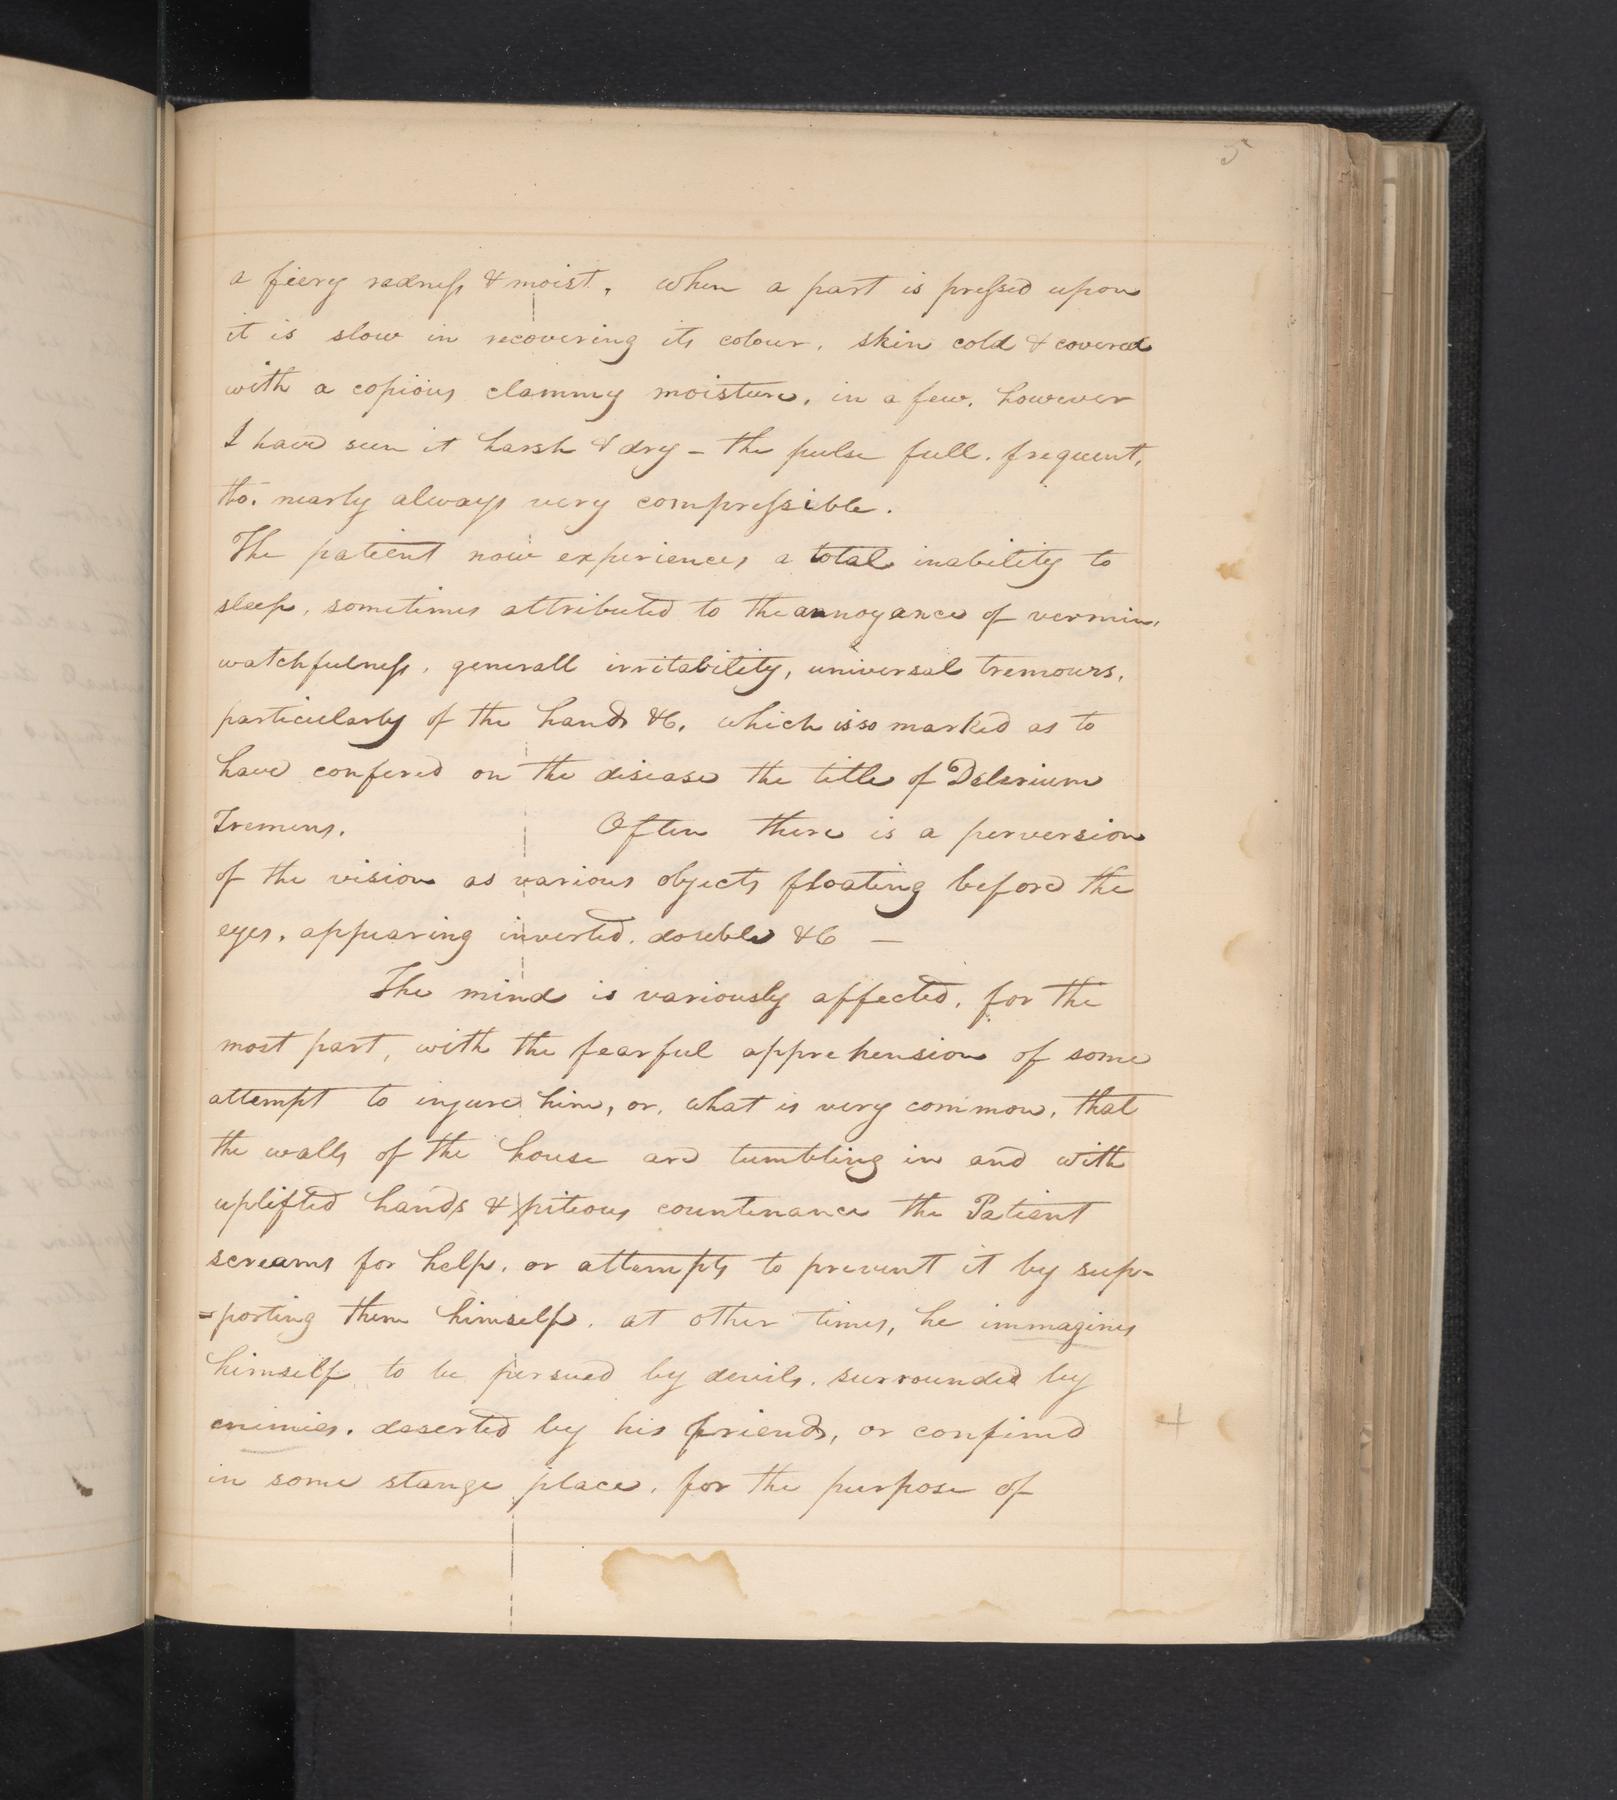 5
a fiery redness & moist, when a part is pressed upon
it is slow in recovering its colour, skin cold & covered
with a copious clammy moisture, in a few, however
I have seen it harsh & dry – the pulse full, frequent,
tho. nearly always very compressible.
The patient now experiences a total inability to
sleep, sometimes attributed to the annoyance of vermin,
watchfulness, generall irritability, universal tremours,
particularly of the hands &c, which is so marked as to
have confered on the disease the title of Delerium
Tremens. Often there is a perversion
of the vision as various objects floating before the
eyes, appearing inverted, double &c —
The mind is variously affected, for the
most part, with the fearful apprehension of some
attempt to injure him, or, what is very common, that
the walls of the house are tumbling in and with
uplifted hands & pitious countenance the Patient
screams for help, or attempts to prevent it by sup-
-porting them himself. at other times, he immagines
himself to be persued by devils, surrounded by
enimies, deserted by his friends, or confined +
in some stange place, for the purpose of